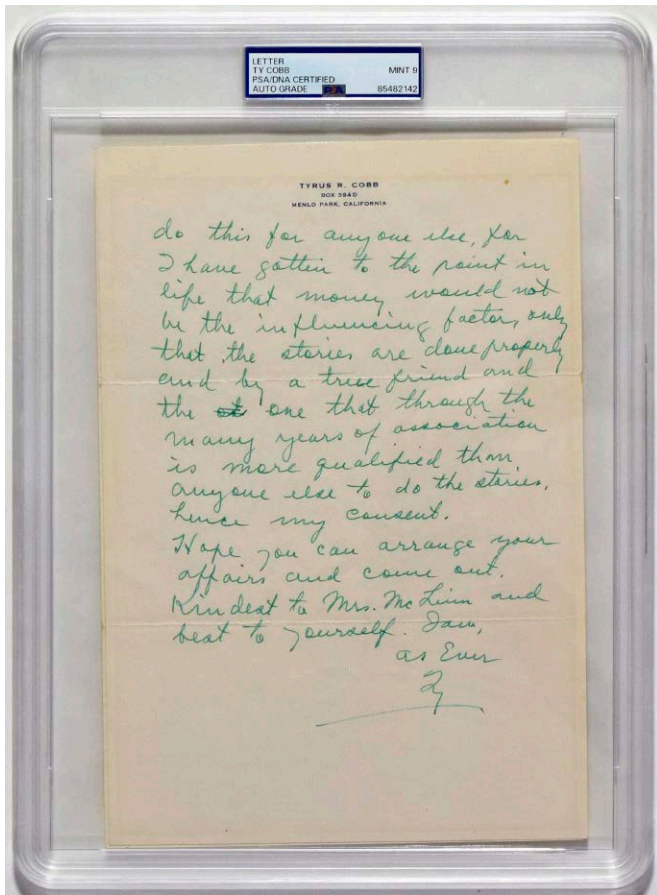 LETTER
TY COBB MINT 9
PSA/DNA CERTIFIED
AUTO GRADE PSA 85482142
TYRUS R. COBB
BOX 394D
MENLO PARK, CALIFORNIA
do this for anyone else, for
I have gotten to the point in
life that money would not
be the influencing factor, only
that the stories are done properly
and by a true friend and
the one that through the
many years of association
is more qualified than
anyone else to do the stories,
hence my consent.
Hope you can arrange your
affairs and come out.
Kindest to Mrs. McLinn and
best to yourself. I am,
as Ever
Ty